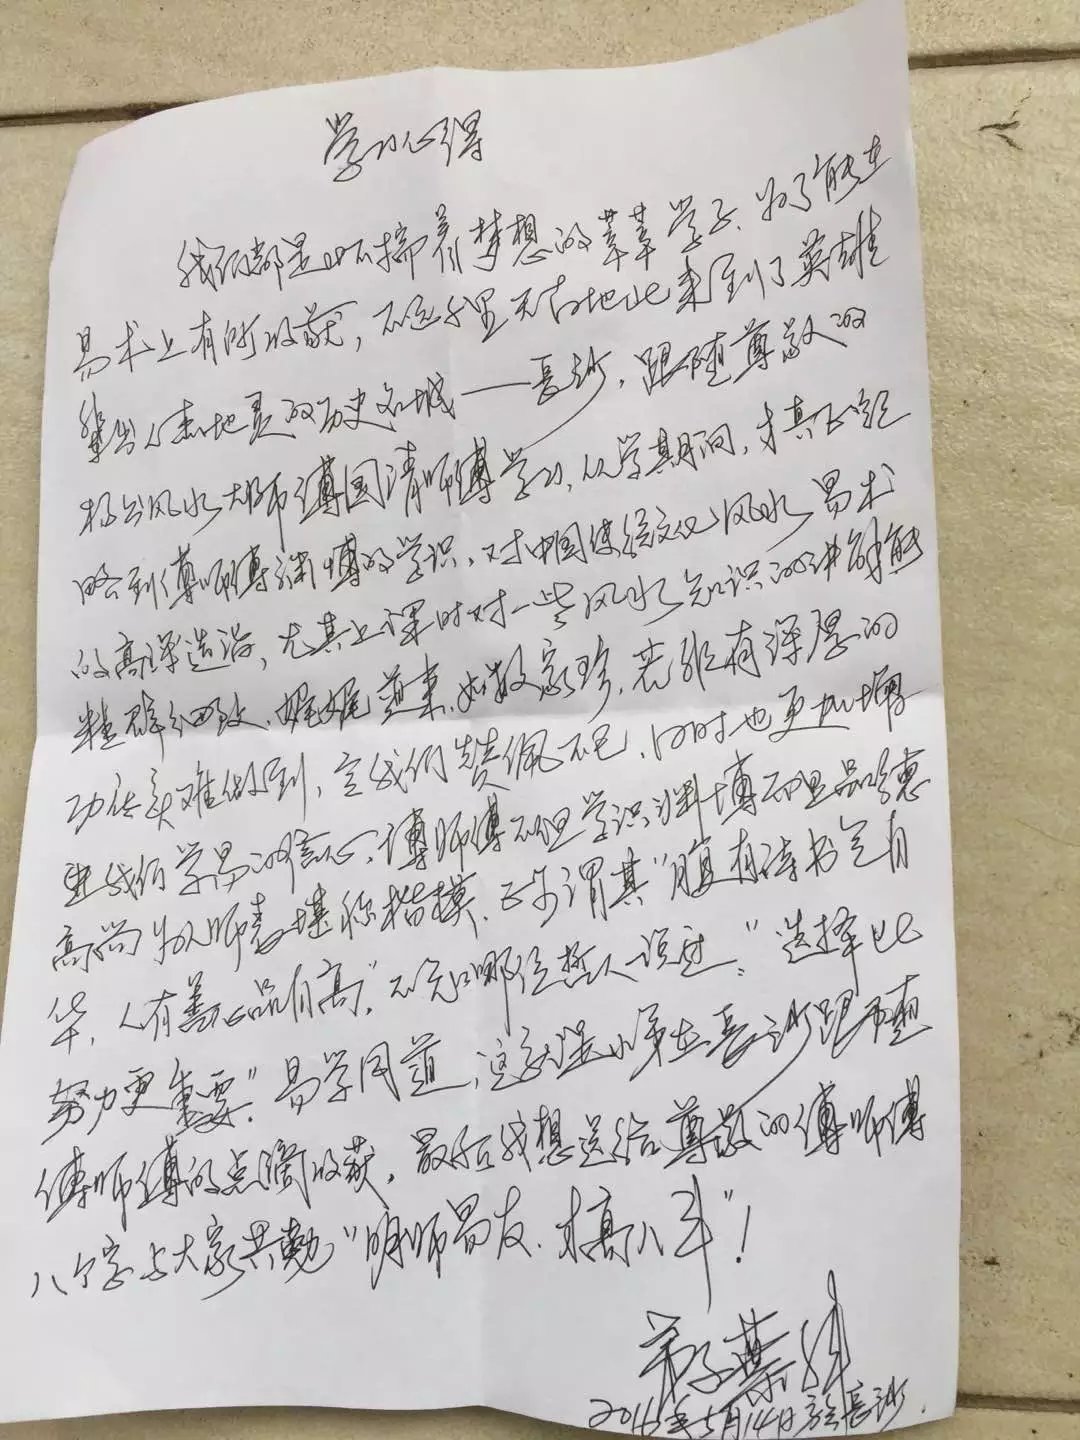 学习心得
我们都是怀揣着梦想的莘莘学子、为了能在
易术上有所收获，不远千里天南地北来到了英雄
辈出人杰地灵的历史名城——长沙，跟随尊敬的
杨公风水大师傅国清师傅学习，从学期间，才真正领
略到傅师傅渊博的学识、对中国传统文化风水易术
的高深造诣，尤其上课时对一些风水知识的讲解能
精辟细致、娓娓道来、如数家珍，若非有深厚的
功底实难做到，令我们赞佩不已，同时也更加增
进我们学易的信心，傅师傅不但学识渊博而且品德
高尚为人师表堪称楷模、正所谓其"腹有诗书气自
华，人有善念品自高"，不知哪位哲人说过："选择比
努力更重要"易学同道，这就是小弟在长沙跟随
傅师傅的点滴收获，最后我想送给尊敬的傅师傅
八个字与大家共勉"明师易友、才高八斗"！
弟子蔡
2016年5月14日于长沙．